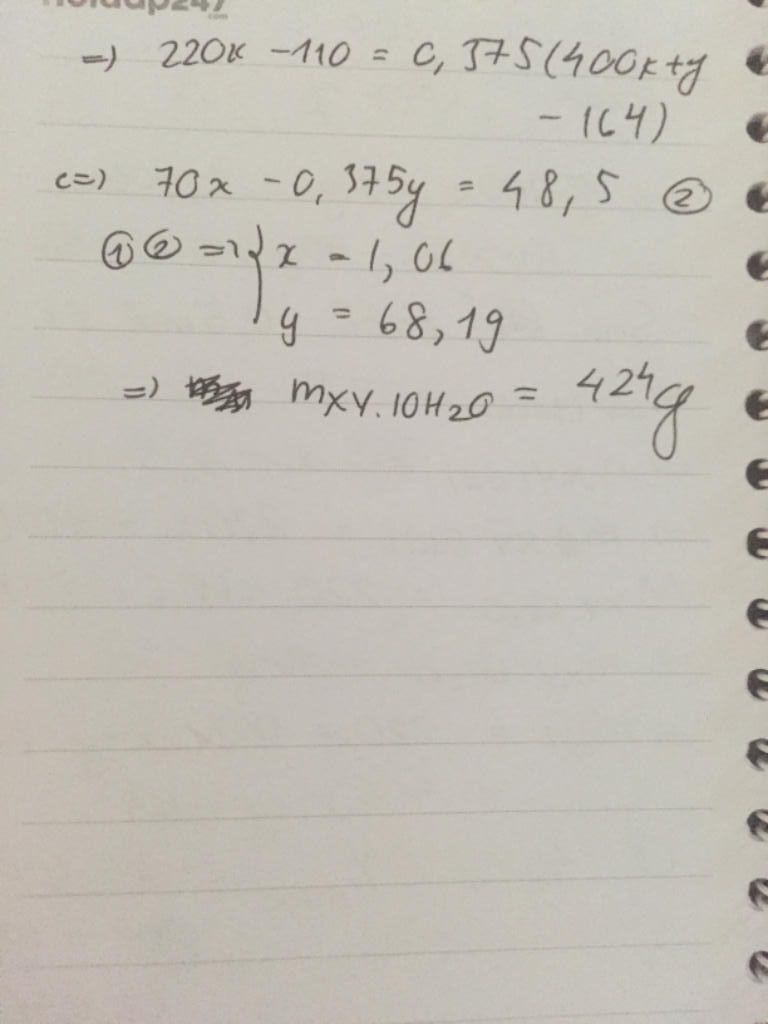 hoidap247
.com
=) 220x - 110 = 0,375(400x+y
- 164)
<=) 70x - 0,375y = 48,5 ②
① ② => { x = 1,06
y = 68,19
=) mXY.10H2O = 424g